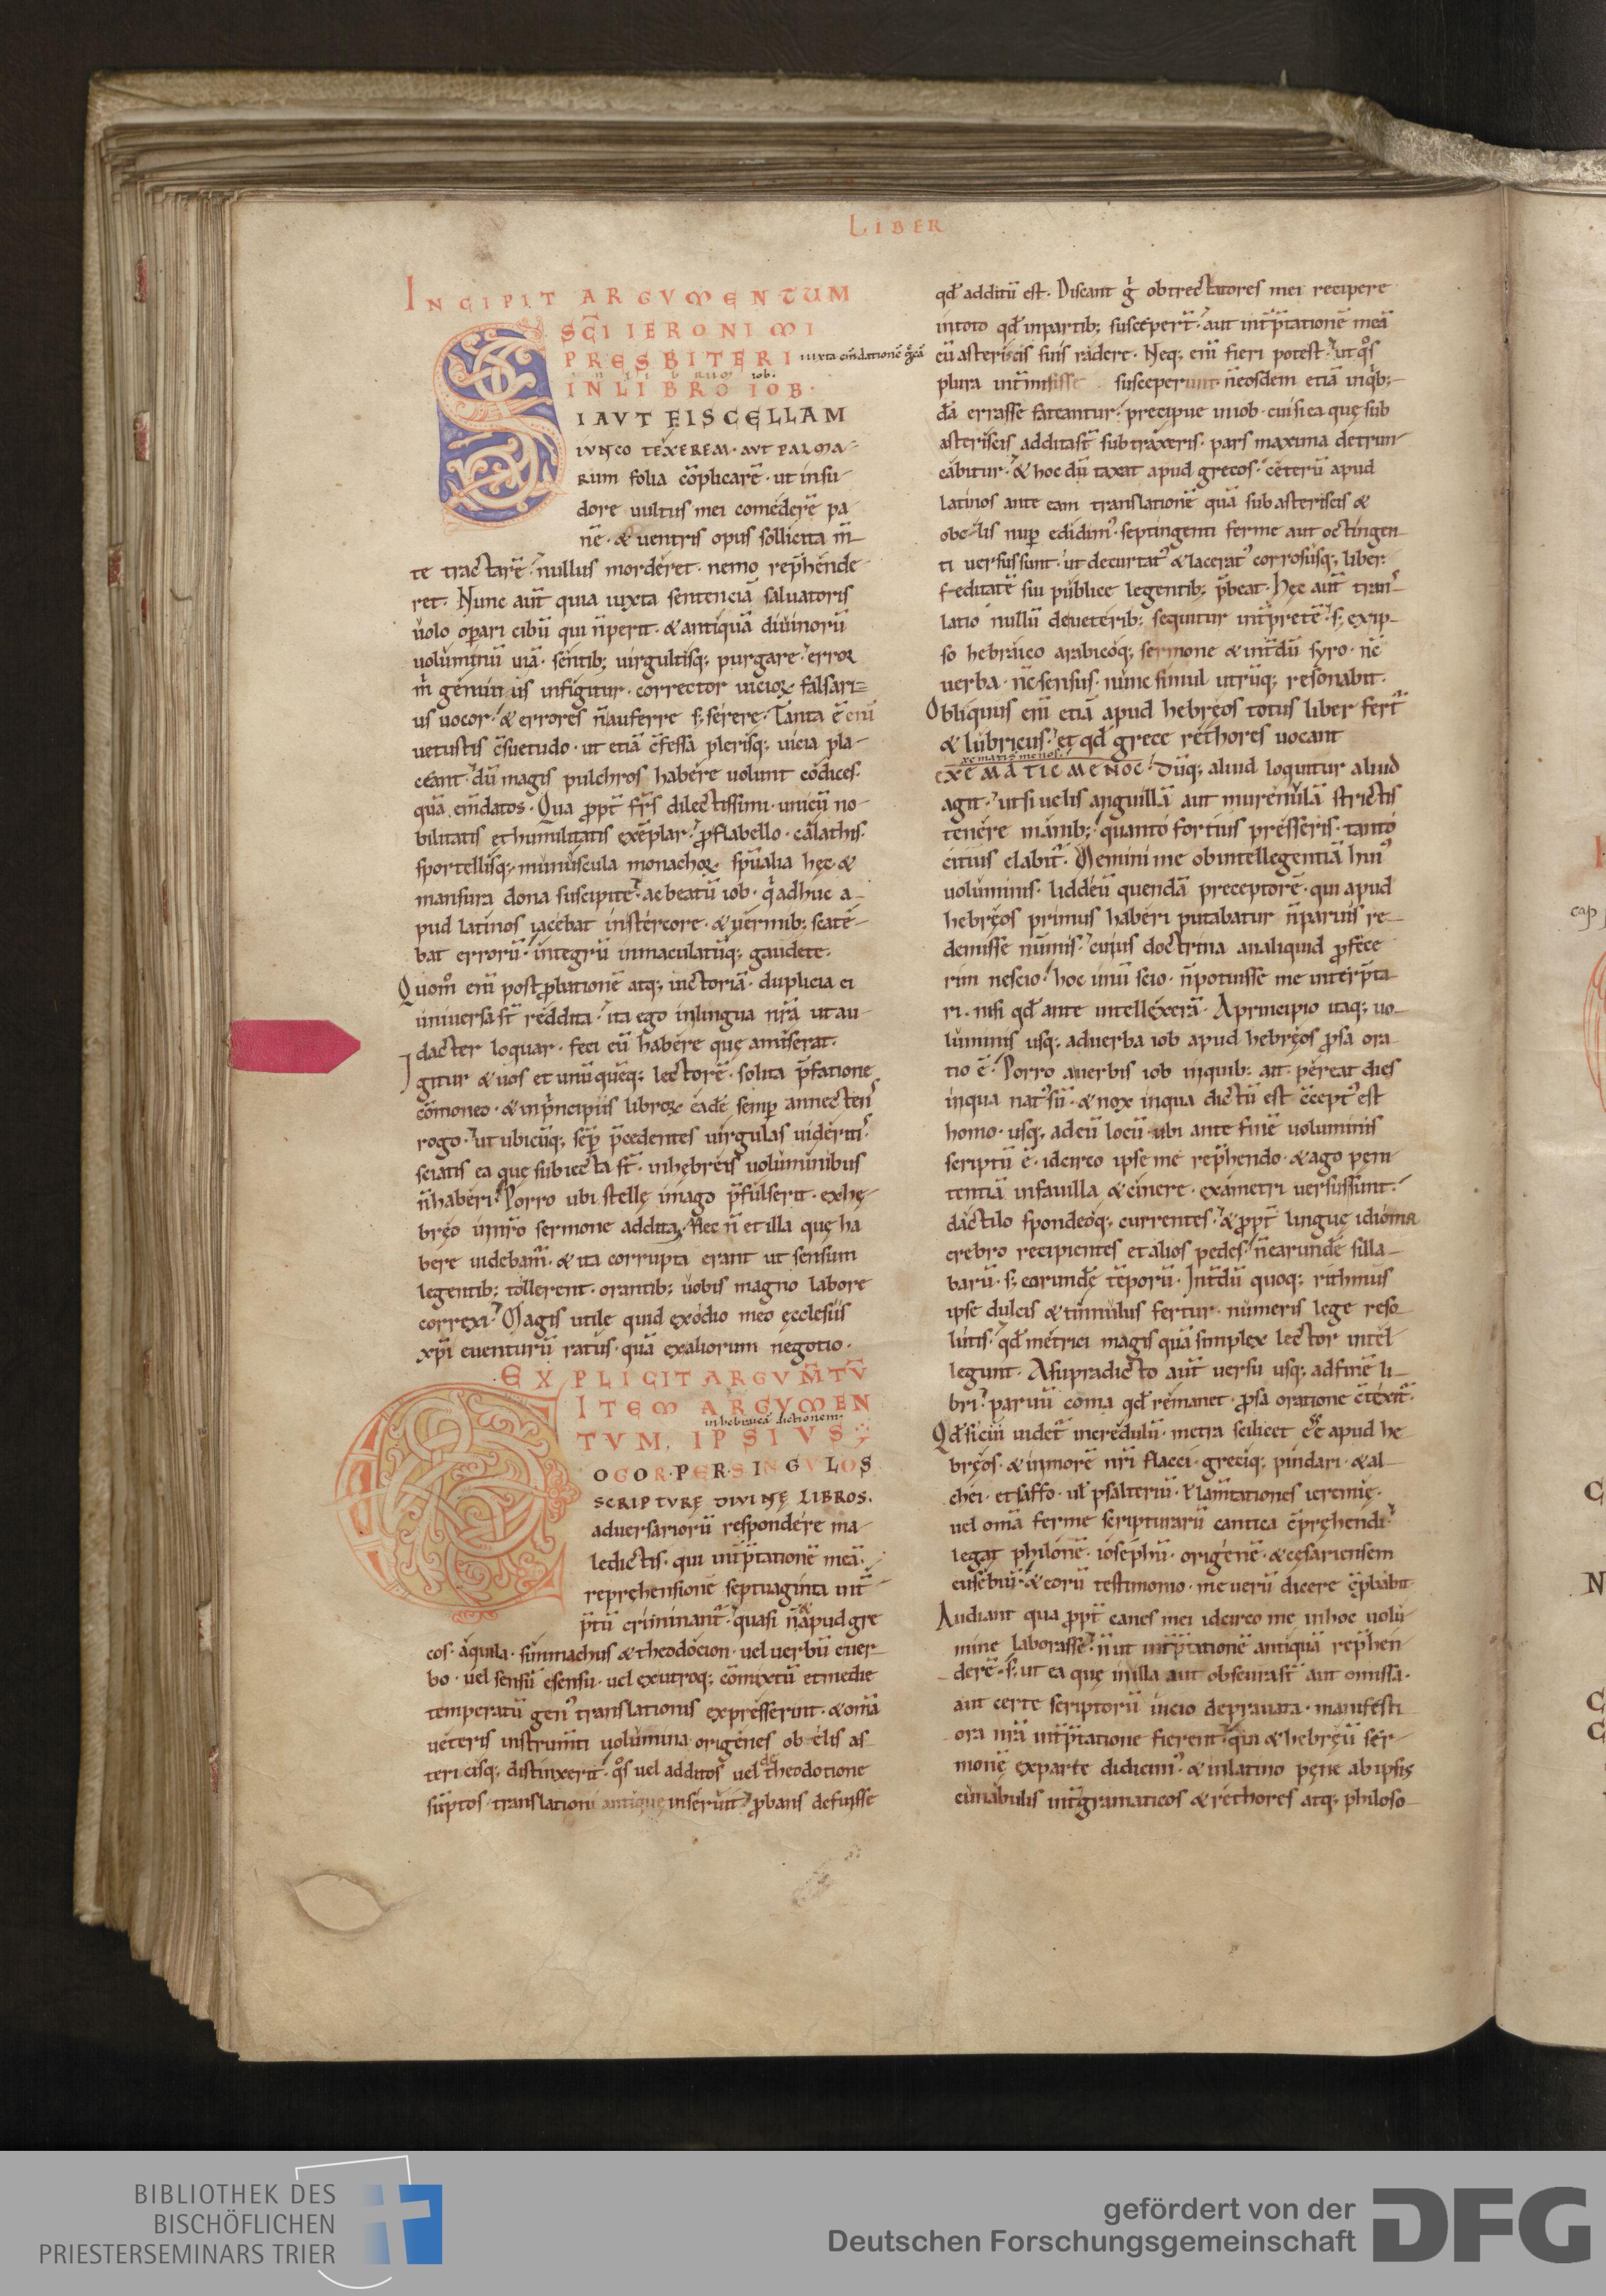 LIBER
INCIPIT ARGVMENTUM
SCI IERONIMI
PRESBITERI iuxta em̄datione grecā
INLIBRO IOB.
SIAVT FISCELLAM
IVNCO TEXEREM. AVT PALMA-
RUM folia cōplicarē. ut insu-
dore uultus mei comederē pa
nē. & uentris opus sollicita m̄-
te tractarē. nullus morderet. nemo rep̄hende
ret. Nunc aut̄ quia iuxta sentenciā saluatoris
uolo op̄ari cibū qui n̄perit. & antiquā diuinorū
uoluminū uiā. sentib; uirgultisq; purgare. error
m̄ geminus infigitur. corrector uicioꝝ falsari=
us uocor. & errores n̄auferre s; serere. Tanta ē eni
uetustis c̄suetudo. ut etiā c̄fessa plerisq; uicia pla-
ceant. dū magis pulchros habere uolunt codices.
quā em̄datos. Qua ꝓpt̄ fr̄s dilectissimi. unicū no-
bilitatis ethumilitatis exēplar. ꝓflabello. calathis.
sportellisq;. munuscula monachoꝝ sp̄ualia hęc &
mansura dona suscipite. ac beatū iob. q̄ adhuc a-
pud latinos iacebat instercore. & uermib; scate-
bat errorū. integrū inmaculatūq; gaudete.
Quom̊ eni post ꝓbationē atq; uictoriā. duplicia ei
uniuersa st̄ reddita. ita ego inlingua nr̄a ut au-
dacter loquar. feci eū habere quę amiserat.
Igitur & uos et unū quēq; lectorē. solita p̄fatione
cōmoneo. & inp̄ncipiis libroꝝ eadē semp̄ annectens
rogo. ut ubicūq; sep̄ p̄cedentes uirgulas uideritis.
sciatis ea quę subiecta st̄. inhebreis uoluminibus
n̄haberi. Porro ubi stellę imago p̄fulserit. exhę-
bręo innr̄o sermone addita. Nec n̄ et illa quę ha
bere uidebam̄. & ita corrupta erant ut sensum
legentib; tollerent. orantib; uobis magno labore
correxi. Magis utile quid exodio meo ęcclesiis
xp̄i euenturū ratus. quā exaliorum negotio.
EXPLICIT ARGVM̄TV̄
ITEM ARGVMEN
inhebraicā dictionem.
TVM. IPSIVS
COGOR. PER. SINGVLOS
SCRIPTVRĘ DIVINĘ LIBROS.
aduersariorū respondere ma-
ledictis. qui int̄p̄tationē meā.
repręhensionē septuaginta int̄-
p̄tū criminant̄. quasi n̄ & apud gre
cos. aquila. simmachus & theodocion. uel uerbū euer-
bo. uel sensū esensu. uel exutroq; cōmixtū etmedie
temperatū gen' translationis expresserint. & omīa
ueteris instrum̄ti uolumina origenes obelis as-
tericisq; distinxerit. q̊s uel additos uel de theodotione
sūptos translationi antique inseruit. ꝓbans defuisse
qd̄ additū est. Discant g̊ obtrectatores mei recipere
intoto qd̄ inpartib; susceper̄t. aut int̄p̄tationē meā
cū asteriscis suis radere. Neq; eni fieri potest. ut q̊s
plura int̄misisse susceperunt. n̄eosdem etiā inq̄b;-
dā errasse fateantur. precipue in iob. cui si ea quę sub
asteriscis addita st̄ subtraxeris. pars maxima detrun-
cabitur. & hoc dū taxat apud grecos. ceterū apud
latinos ante eam translationē quā sub asteriscis &
obelis nup̄ edidim'. septingenti ferme aut octingen-
ti uersus sunt. ut decurtat' & lacerat' corrosusq; liber.
feditatē sui publice legentib; p̄beat. Hęc aut̄ trans-
latio nullū de ueterib; sequitur int̄pretē. s; exip-
so hebraico arabicoq; sermone & int̄dū syro. nc̄
uerba. nc̄ sensus. nunc simul utrūq; resonabit.
Obliquus eni etiā apud hebręos totus liber fert̄
& lubricus. et qd̄ grece rethores uocant
exematis menos.
EXEMATICMENOC. Dūq; aliud loquitur aliud
agit. ut si uelis anguillā aut murenulā strictis
tenere manib; quanto fortius presseris. tanto
citius elabit̄. Memini me ob intellegentiā hui'
uoluminis. liddeū quendā preceptorē. qui apud
hebręos primus haberi putabatur n̄paruis re-
demisse nūmis. cuius doctrina analiquid ꝓfece
rim nescio. hoc unū scio. n̄potuisse me interp̄ta
ri. nisi qd̄ ante intellexerā. A principio itaq; uo-
luminis usq; aduerba iob apud hebręos ꝓsa ora
tio ē. Porro a uerbis iob inquib; ait. pereat dies
inqua nat' sū. & nox inqua dictū est c̄cept' est
homo. usq; adeū locū. ubi ante finē uoluminis
scriptū ē. idcirco ipse me rep̄hendo. & ago pęni
tentiā infauilla & cinere. exametri uersus sunt.
dactilo spondeoq; currentes. & ꝓpt̄ linguę idioma
crebro recipientes etalios pedes. n̄earundē silla-
barū. s; eorundē tēporū. Int̄dū quoq; rithmus
ipse dulcis & tinnulus fertur. numeris lege reso-
lutis. qd̄ metrici magis quā simplex lector intel-
legunt. A supradicto aut̄ uersu usq; adfinē li-
bri. paruū coma qd̄ remanet. ꝓsa oratione c̄texit̄.
Qd̄ si cui uidet̄ incredulū. metra scilicet ēē apud he
bręos. & inmorē nr̄i flacci. greciq; pindari. & al-
chei. et saffo. ul̄ psalteriū. ul̄ lam̄tationes ieremię.
uel omīa ferme scripturarū cantica c̄pręhendi.
legat philonē. iosephū. origenē. & cęsariensem
eusebiū. & eorū testimonio. me uerū dicere c̄ꝓbabit.
Audiant qua ꝓpt̄ canes mei idcirco me inhoc uolu-
mine laborasse. n̄ut int̄p̄tationē antiquā rep̄hen
derē. s; ut ea quę inilla aut obscura st̄ aut omissa.
aut certe scriptorū uicio deprauata. manifesti
ora nr̄a int̄p̄tatione fierent. qui & hebręū ser-
monē exparte didicim'. & inlatino pęne ab ipsis
cunabulis int̄ gramaticos & rethores atq; philoso-
cap
BIBLIOTHEK DES
BISCHÖFLICHEN
PRIESTERSEMINARS TRIER
gefördert von der
Deutschen Forschungsgemeinschaft
DFG